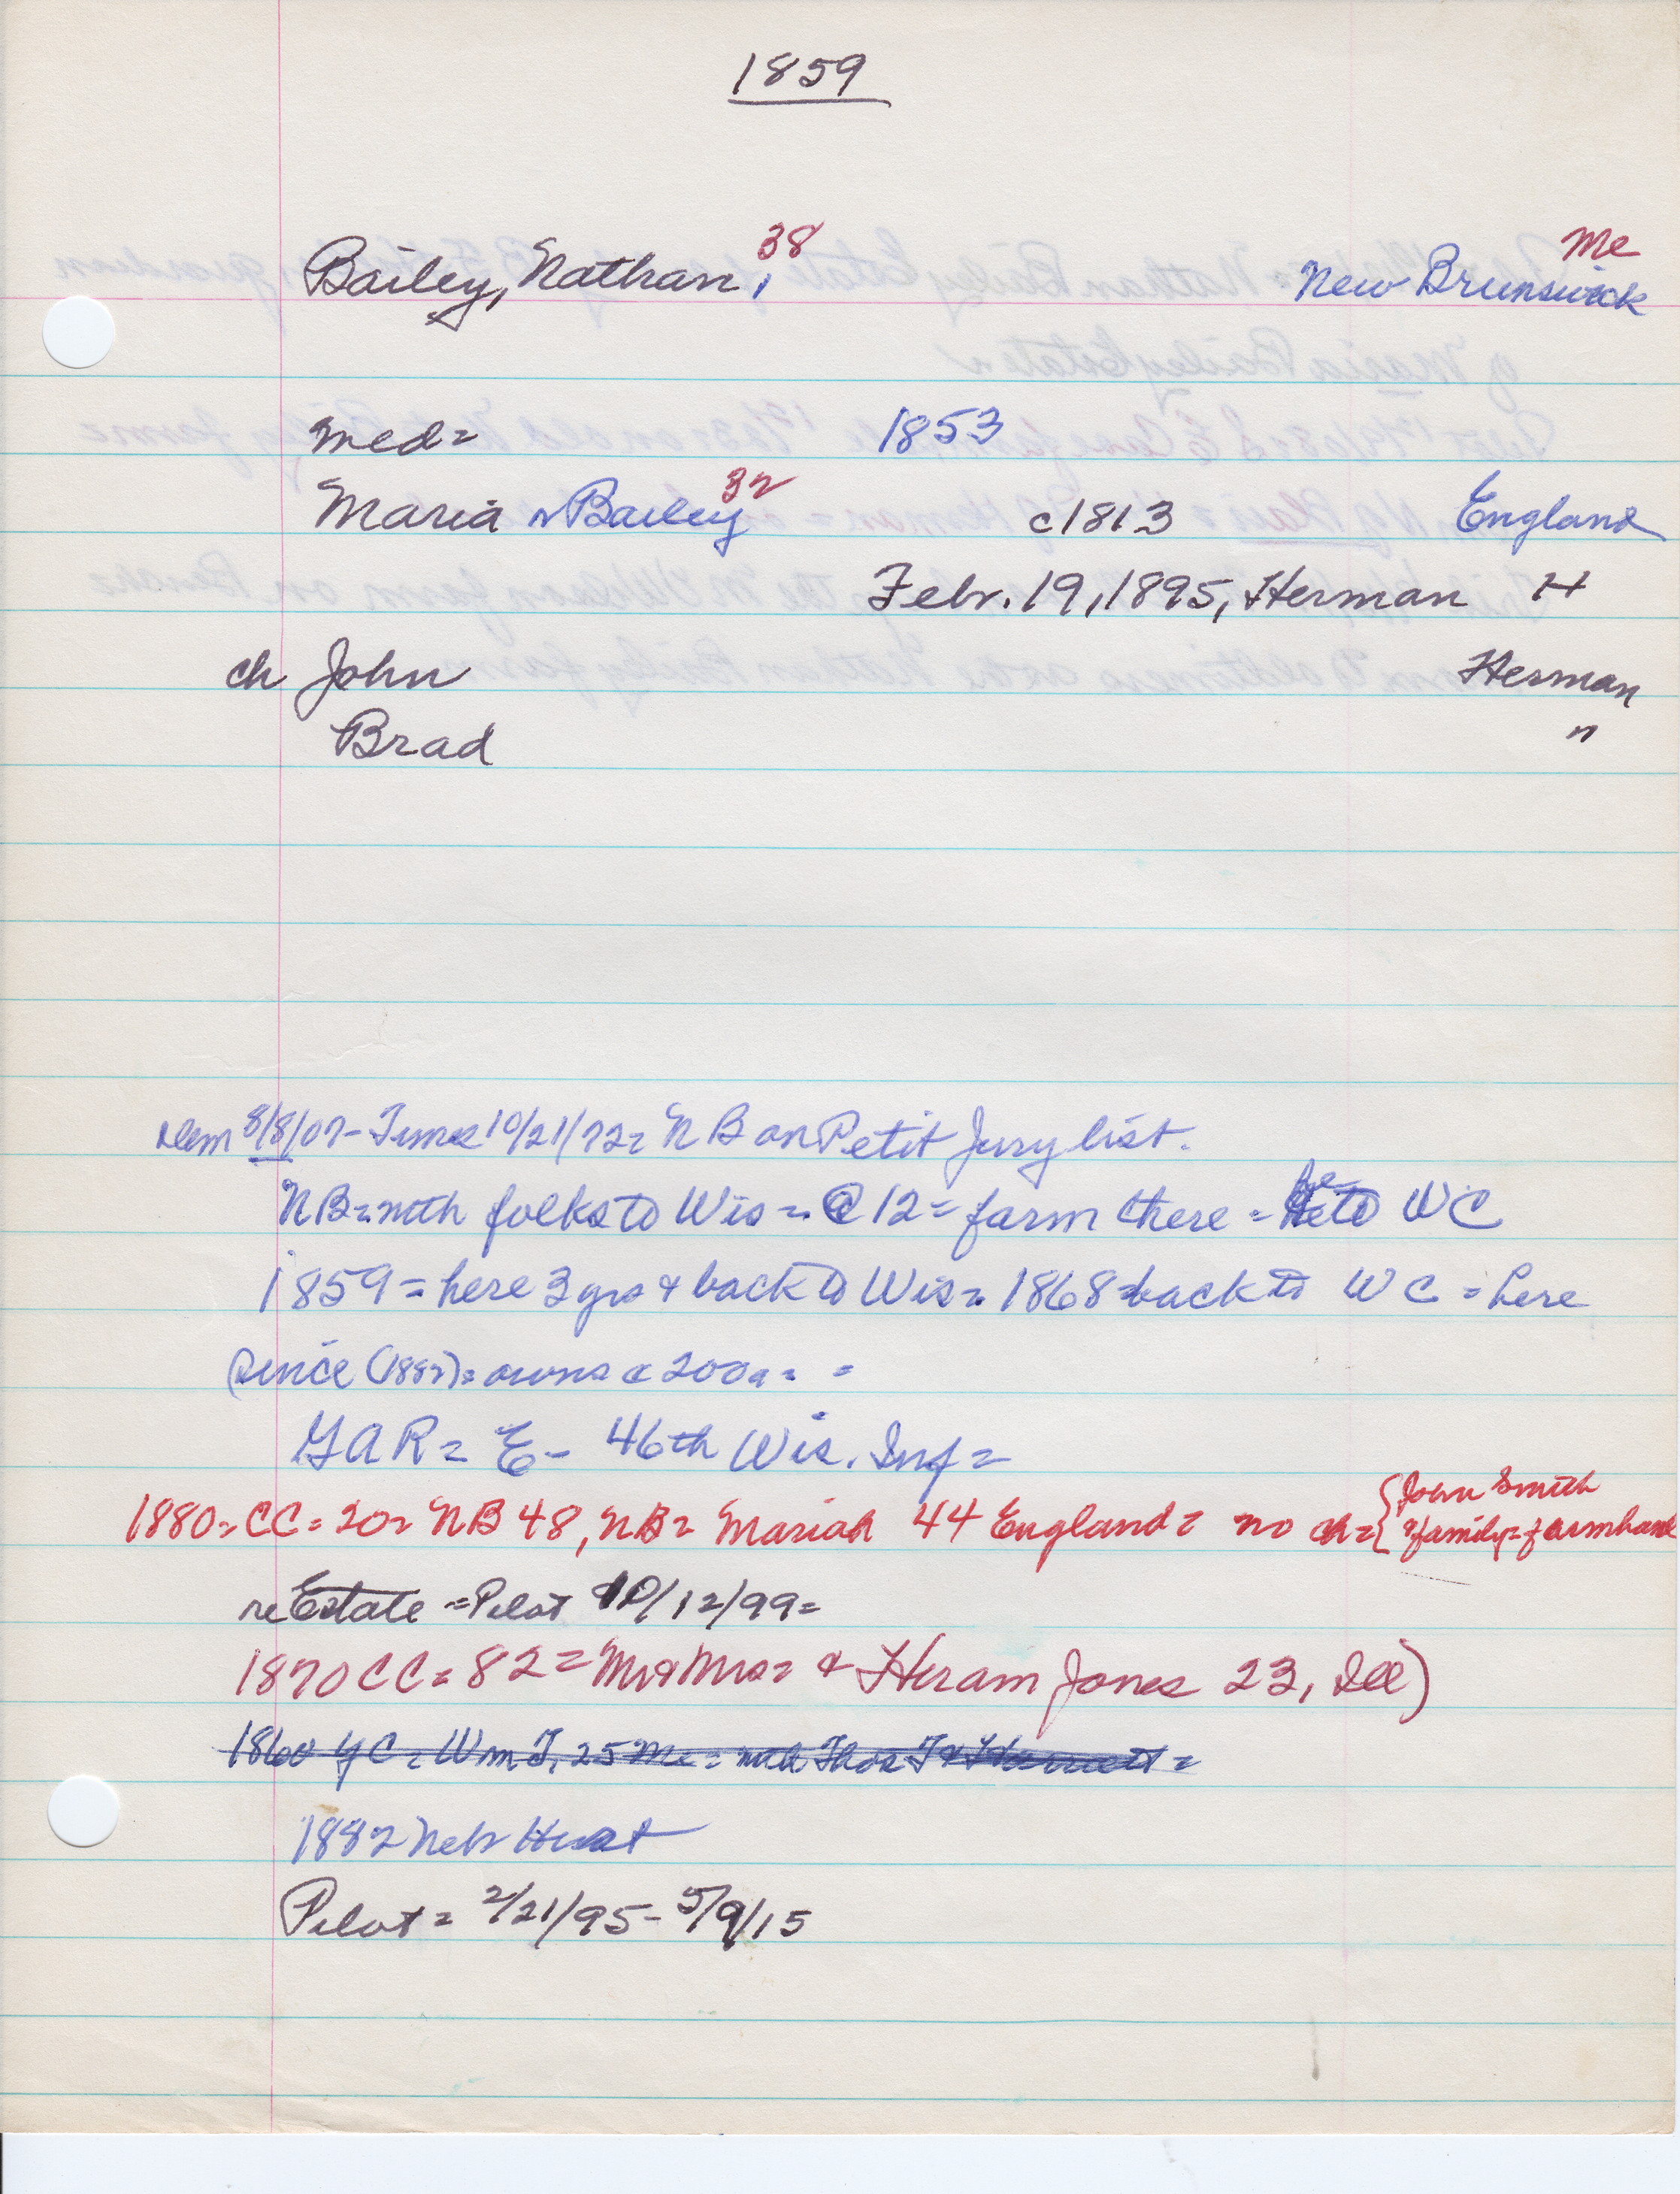 1859
Bailey, Nathan, 38 Me
New Brunswick
med = 1853
Maria n Bailey 32 c1813 England
Febr. 19, 1895, Herman H
ch John Herman
Brad "
8/8/07 - Times 10/21/72 = NB on Petit Jury list.
NB = with folks to Wis = @ 12 = farm there = to WC
1859 = here 3 yrs & back to Wis = 1868 = back to WC = here
since (1882) = owns c 200a = =
GAR = E - 46th Wis. Inf =
1880 = CC = 20 = NB 48, NB = Mariah 44 England = no ch = { John Smith
& family = farmhand
re Estate = Pilot 10/12/99 =
1870 CC = 82 = Mr & Mrs = & Hiram Jones 23, Ill)
1860 YC = Wm T, 25 Me = with Thos T & Harriett =
1882 Nebr Hist
Pilot = 2/21/95 - 5/9/15